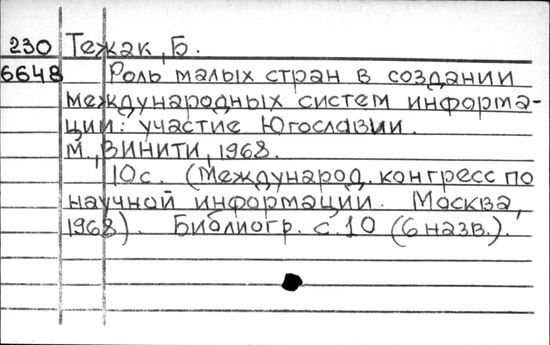 230 Тежак, Б.
6648 Роль малых стран в создании
международных систем информа-
ции: участие Югославии.
М., ВИНИТИ, 1968.
10с. (Международ. конгресс по
научной информации. Москва,
1968). Библиогр. с.10 (6 назв.).